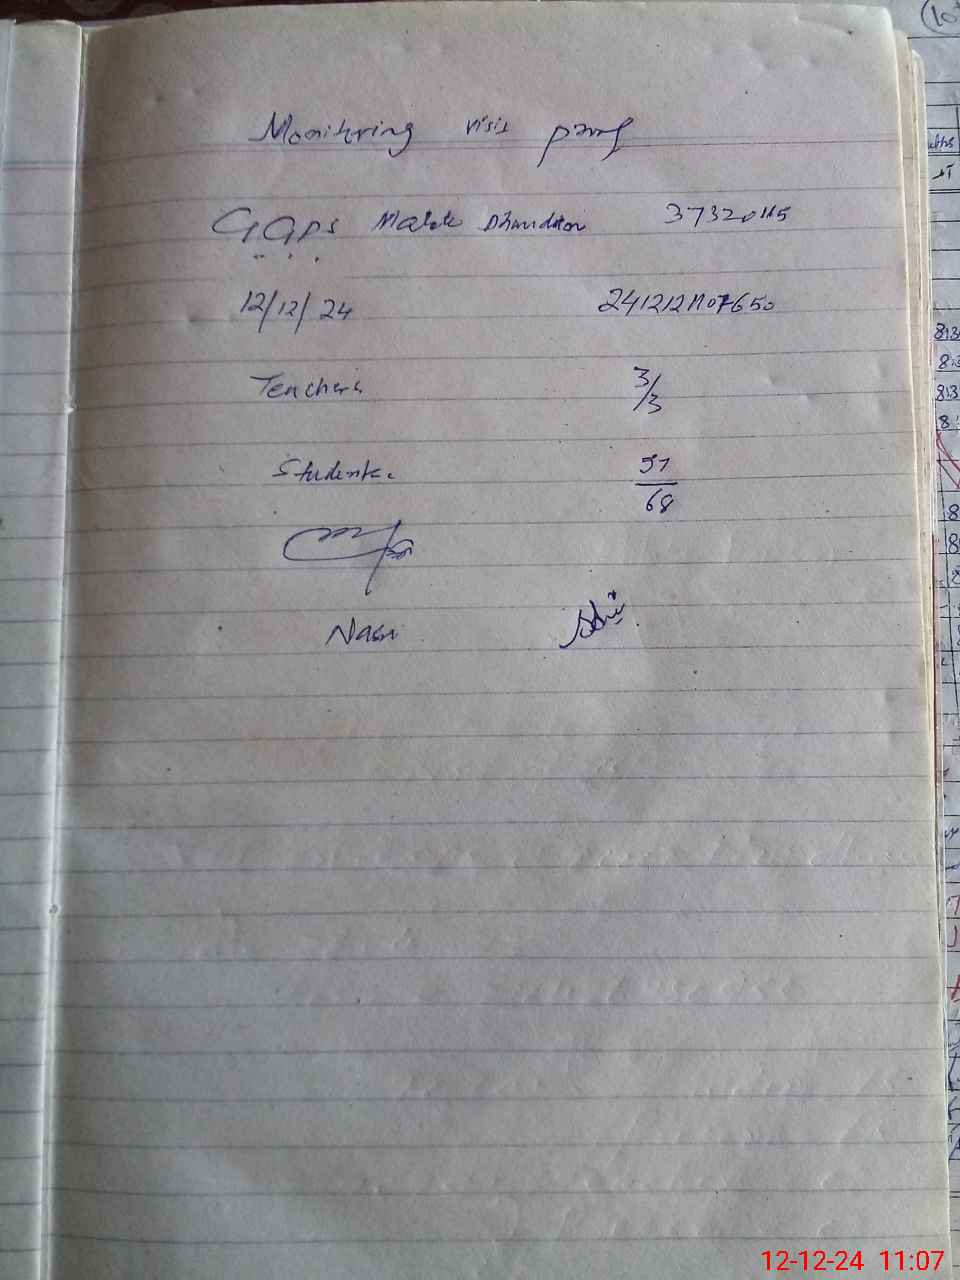 Monitering visit proof
GGPS 37320115
12/12/24 2412121107650
Teachers 3/3
Students 51/68
Nasir
12-12-24 11:07